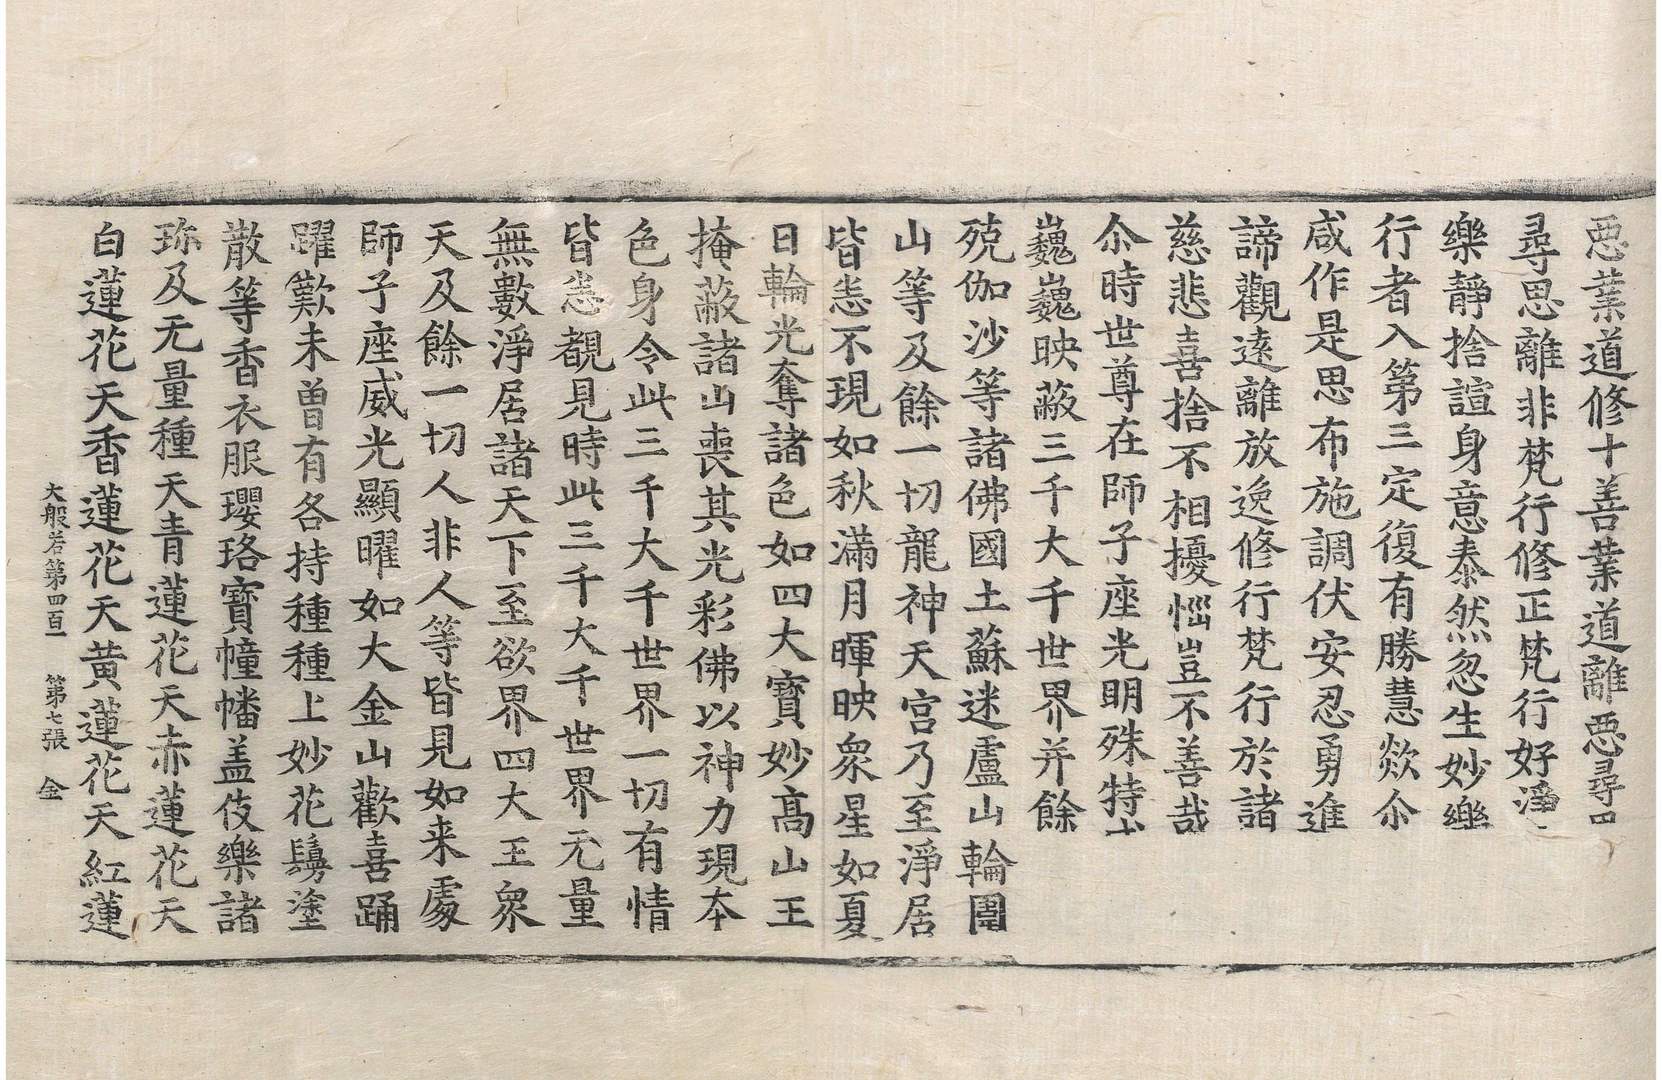 惡業道修十善業道離惡尋
尋思離非梵行修正梵行好淨
樂靜捨諠身意泰然忽生妙樂
行者入第三定復有勝慧欻尒
咸作是思布施調伏安忍勇進
諦觀遠離放逸修行梵行於諸
慈悲喜捨不相擾惱豈不善哉
尒時世尊在師子座光明殊特
巍巍映蔽三千大千世界并餘
殑伽沙等諸佛國土蘇迷盧山輪圍
山等及餘一切龍神天宮乃至淨居
皆悉不現如秋滿月暉映衆星如夏
日輪光奪諸色如四大寶妙高山王
掩蔽諸山喪其光彩佛以神力現本
色身令此三千大千世界一切有情
皆悉覩見時此三千大千世界无量
無數淨居諸天下至欲界四大王衆
天及餘一切人非人等皆見如来處
師子座威光顯曜如大金山歡喜踊
躍歎未曾有各持種種上妙花鬘塗
散等香衣服瓔珞寶幢幡盖伎樂諸
珎及无量種天青蓮花天赤蓮花天
白蓮花天香蓮花天黄蓮花天紅蓮
大般若第四百一 第七張 金